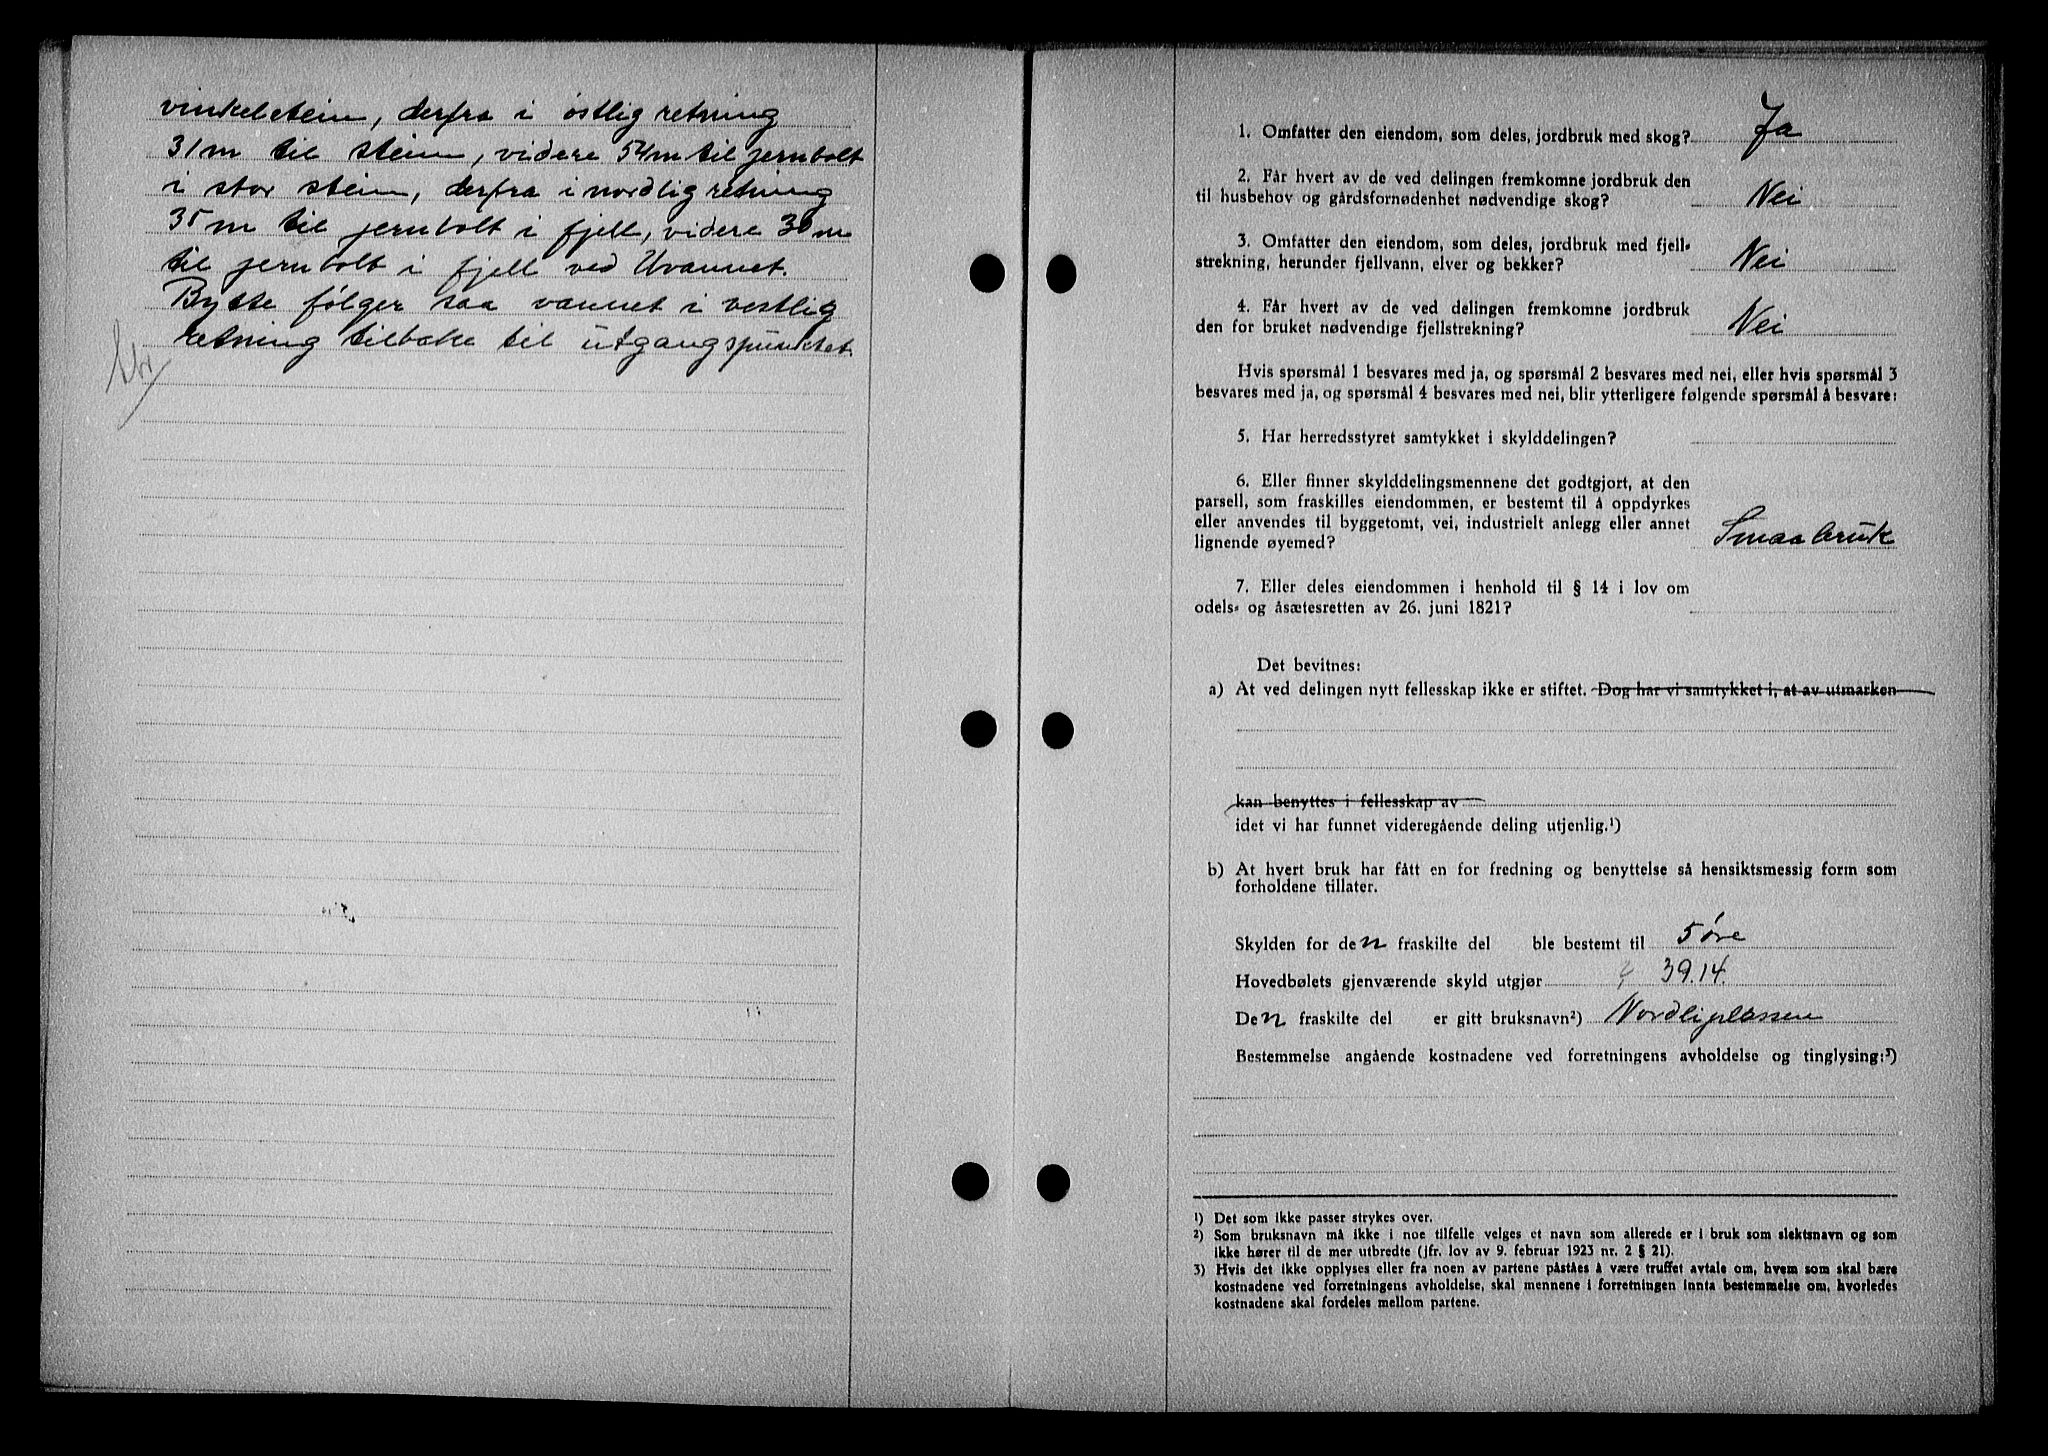 vinkelstein, derfra i østlig retning
31 m til stein, videre 54 m til jernbolt
i stor stein, derfra i nordlig retning
35 m til jernbolt i fjell, videre 30 m
til jernbolt i fjell ved Uvannet.
Bytte følger saa vannet i vestlig
retning tilbake til utgangspunktet.
1. Omfatter den eiendom, som deles, jordbruk med skog? Ja
2. Får hvert av de ved delingen fremkomne jordbruk den
til husbehov og gårdsfornødenhet nødvendige skog? Nei
3. Omfatter den eiendom, som deles, jordbruk med fjell-
strekning, herunder fjellvann, elver og bekker? Nei
4. Får hvert av de ved delingen fremkomne jordbruk
den for bruket nødvendige fjellstrekning? Nei
Hvis spørsmål 1 besvares med ja, og spørsmål 2 besvares med nei, eller hvis spørsmål 3
besvares med ja, og spørsmål 4 besvares med nei, blir ytterligere følgende spørsmål å besvare:
5. Har herredsstyret samtykket i skylddelingen?
6. Eller finner skylddelingsmennene det godtgjort, at den
parsell, som fraskilles eiendommen, er bestemt til å oppdyrkes
eller anvendes til byggetomt, vei, industrielt anlegg eller annet
lignende øyemed? Smaabruk
7. Eller deles eiendommen i henhold til § 14 i lov om
odels- og åsætesretten av 26. juni 1821?
Det bevitnes:
a) At ved delingen nytt fellesskap ikke er stiftet. Dog har vi samtykket i, at av utmarken
kan benyttes i fellesskap av
idet vi har funnet videregående deling utjenlig.¹)
b) At hvert bruk har fått en for fredning og benyttelse så hensiktsmessig form som
forholdene tillater.
Skylden for den fraskilte del ble bestemt til 5 øre
Hovedbølets gjenværende skyld utgjør 39.14.
Den fraskilte del er gitt bruksnavn²) Nordliplassen
Bestemmelse angående kostnadene ved forretningens avholdelse og tinglysing:³)
¹) Det som ikke passer strykes over.
²) Som bruksnavn må ikke i noe tilfelle velges et navn som allerede er i bruk som slektsnavn og som
ikke hører til de mer utbredte (jfr. lov av 9. februar 1923 nr. 2 § 21).
3) Hvis det ikke opplyses eller fra noen av partene påståes å være truffet avtale om, hvem som skal bære
kostnadene ved forretningens avholdelse, skal mennene i forretningen innta bestemmelse om, hvorledes
kostnadene skal fordeles mellom partene.